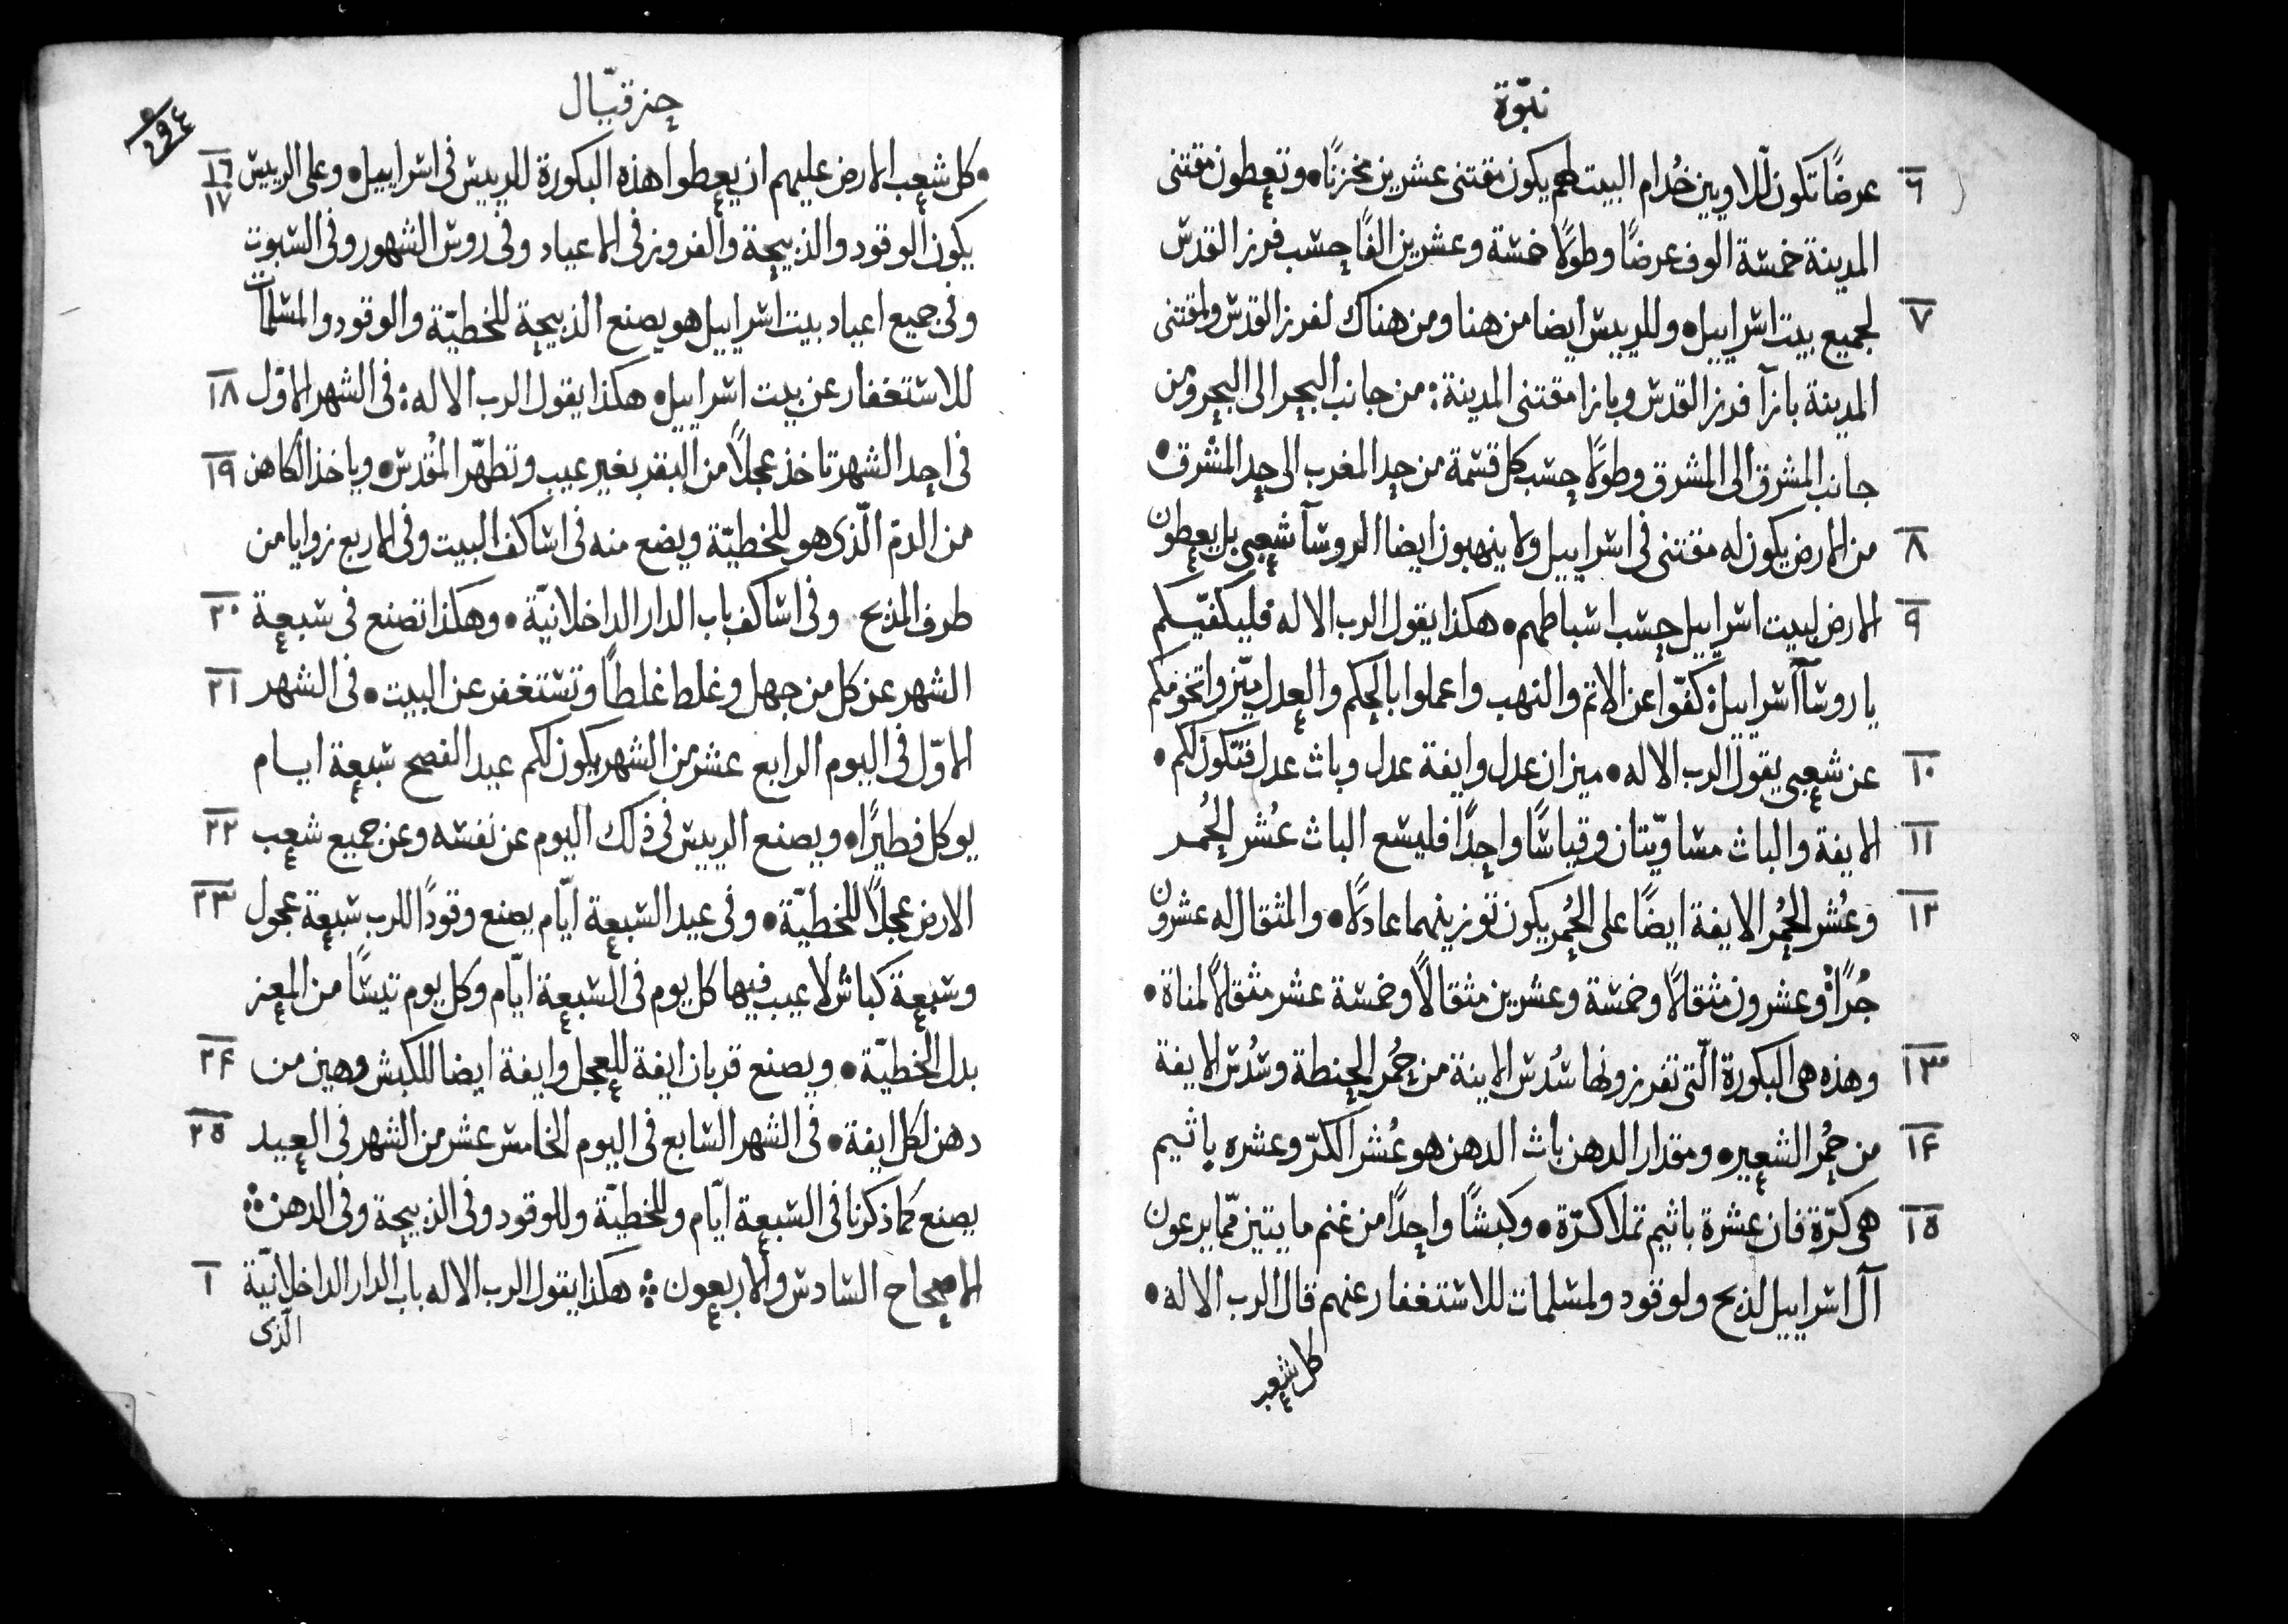 نبوّة
٦ عرضًا تكون للاويين خُدام البيت لهم يكون مقتنى عشرين مخزنًا • وتعطون مقتنى
المدينة خمسة الوف عرضًا وطولًا خمسة وعشرين الفًا حسب فرز القدس
٧ لجميع بيت اسراييل • وللرييس ايضا من هنا ومن هناك لفرز القدس ولمقتنى
المدينة بازآ فرز القدس وبازا مقتنى المدينة : من جانب البحر الى البحر ومن
جانب المشرق الى المشرق وطولًا حسب كل قسمة من حد المغرب الى حد المشرق •
٨ من الارض يكون له مقتنى فى اسراييل ولا ينهبون ايضا الروسآ شعبى بل يعطون
٩ الارض لبيت اسراييل حسب اسباطهم • هكذا يقول الرب الاله فليكفّيكم
يا روسآ اسراييل : كفّوا عن الاثم والنهب واعملوا بالحكم والعدل ميّزوا تخومكم
١٠ عن شعبى يقول الرب الاله • ميزان عدل وايفة عدل وباث عدل فتكون لكم •
١١ الايفة والباث مساويّتان وقياسًا واحدًا فليسع الباث عُشر الحُمر
١٢ وعُشر الحُمر الايفة ايضًا على الحُمر يكون توزينهما عادلًا • والمثقال له عشرون
جُرًا وعشرون مثقالًا وخمسة وعشرين مثقالًا وخمسة عشر مثقالًا لمناة •
١٣ وهذه هى البكورة الّتى تفرزونها سُدس الايفة من حُمر الحنطة وسُدس الايفة
١٤ من حُمر الشعير • ومقدار الدهن باث الدهن هو عُشر الكرّ وعشره باثيم
١٥ هى كرّة فان عشرة باثيم تملا كرّة • وكبشًا واحدًا من غنم مايتين ممّا يرعون
آل اسراييل لذبح ولوقود ولمسلمات للاستغفار عنهم قال الرب الاله •
كل شعب
حزقيّال
٢٩٤
١٦ ١٧ • كل شعب الارض عليهم ان يعطوا هذه البكورة للرييس فى اسراييل • وعلى الرييس
يكون الوقود والذبيحة والفروز فى الاعياد وفى روس الشهور وفى السبوت
وفى جميع اعياد بيت اسراييل هو يصنع الذبيحة للخطيّة والوقود والمسلمات
١٨ للاستغفار عن بيت اسراييل • هكذا يقول الرب الاله : فى الشهر الاوّل
١٩ فى احد الشهر تاخذ عجلًا من البقر بغير عيب وتطهّر المُقدس • وياخذ الكاهن
من الدم الّذى هو للخطيّة ويضع منه فى اساكف البيت وفى الاربع زوايا من
٢٠ طرف المذبح وفى اساكف باب الدار الداخلانيّة • وهكذا تصنع فى سبعة
٢١ الشهر عن كل من جهل وغلط غلطًا وتستغفر عن البيت • فى الشهر
الاوّل فى اليوم الرابع عشر من الشهر يكون لكم عيد الفصح سبعة ايام
٢٢ يوكل فطيرًا • ويصنع الرييس فى ذلك اليوم عن نفسه وعن جميع شعب
٢٣ الارض عجلًا للخطيّة • وفى عيد السبعة ايّام يصنع وقودًا للرب سبعة عجول
وسبعة كباش لا عيب فيها كل يوم فى السبعة ايّام وكل يوم تيسًا من المعز
٢٤ بدل الخطيّة • ويصنع قربان ايفة للعجل وايفة ايضا للكبش وهين من
٢٥ دهن لكل ايفة • فى الشهر السابع فى اليوم الخامس عشر من الشهر فى العيد
يصنع كما ذكرنا فى السبعة ايّام وللخطيّة وللوقود وفى الذبيحة وفى الدهن :
١ الاصحاح السادس والاربعون : هكذا يقول الرب الاله باب الدار الداخلانيّة
الّذى